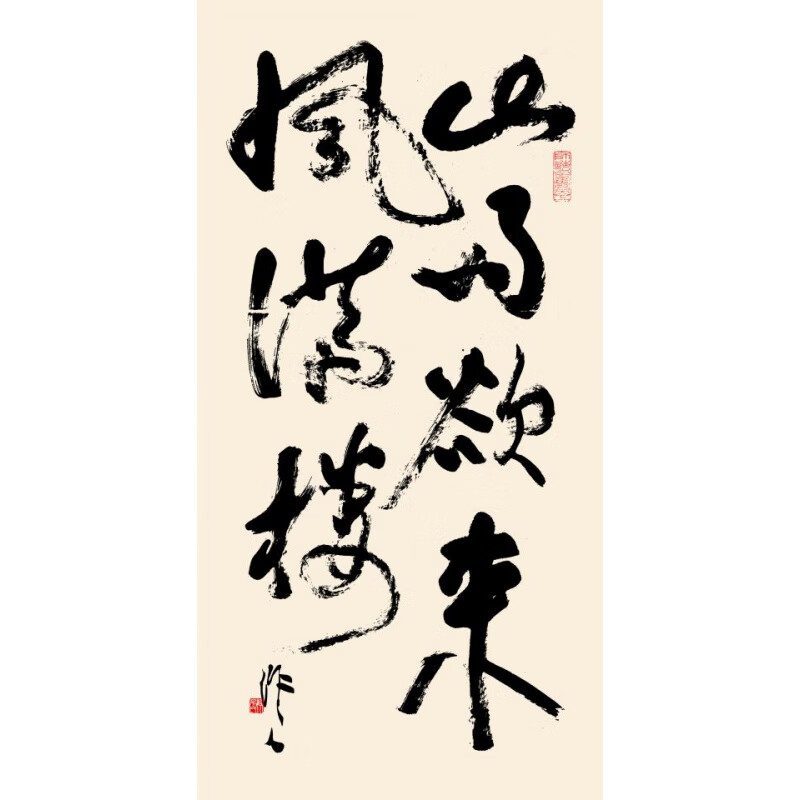 山雨欲来
風满楼